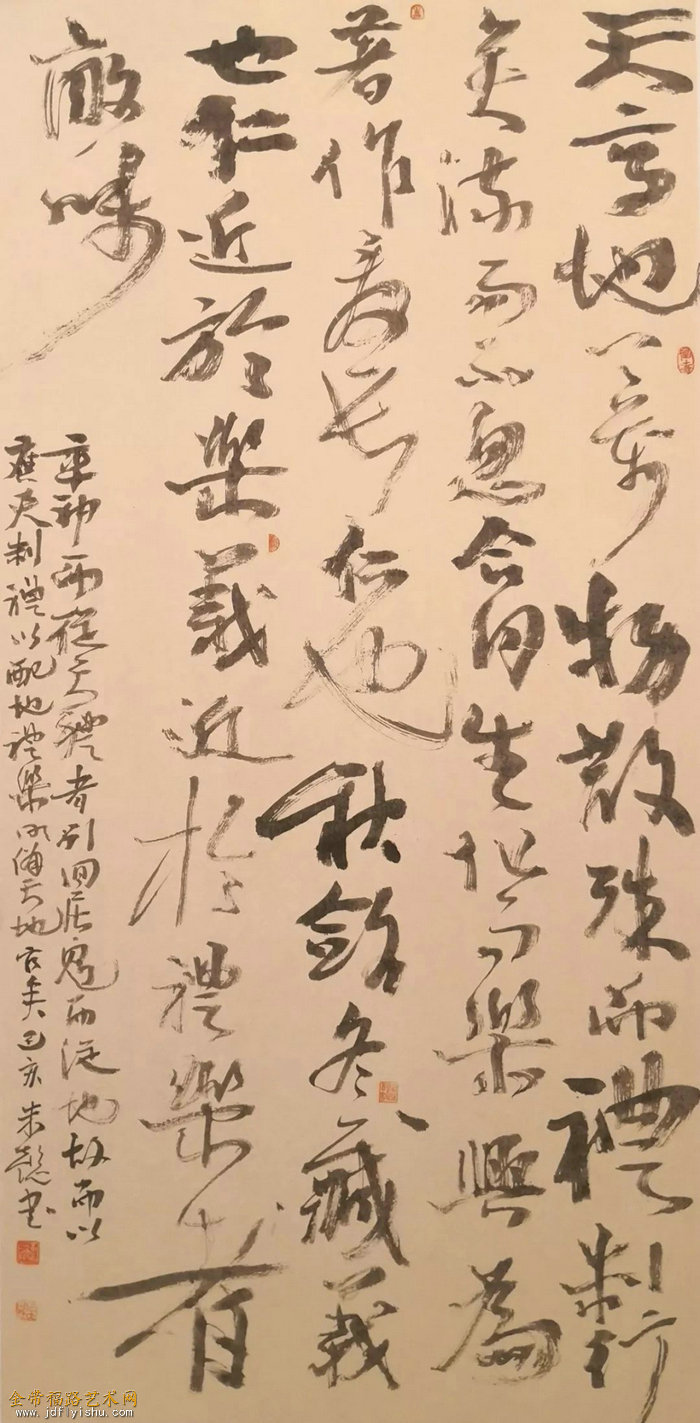 天高地下萬物散殊而禮制行
矣流而不息合同生化而樂興焉
春作夏長仁也秋斂冬藏義
也仁近於樂義近於禮樂者
敦和
率神而從天禮者別宜居鬼而從地故
應天制禮以配地禮樂明備天地官矣己亥朱懿書
金帝福路艺术网
www.jdflyishu.com